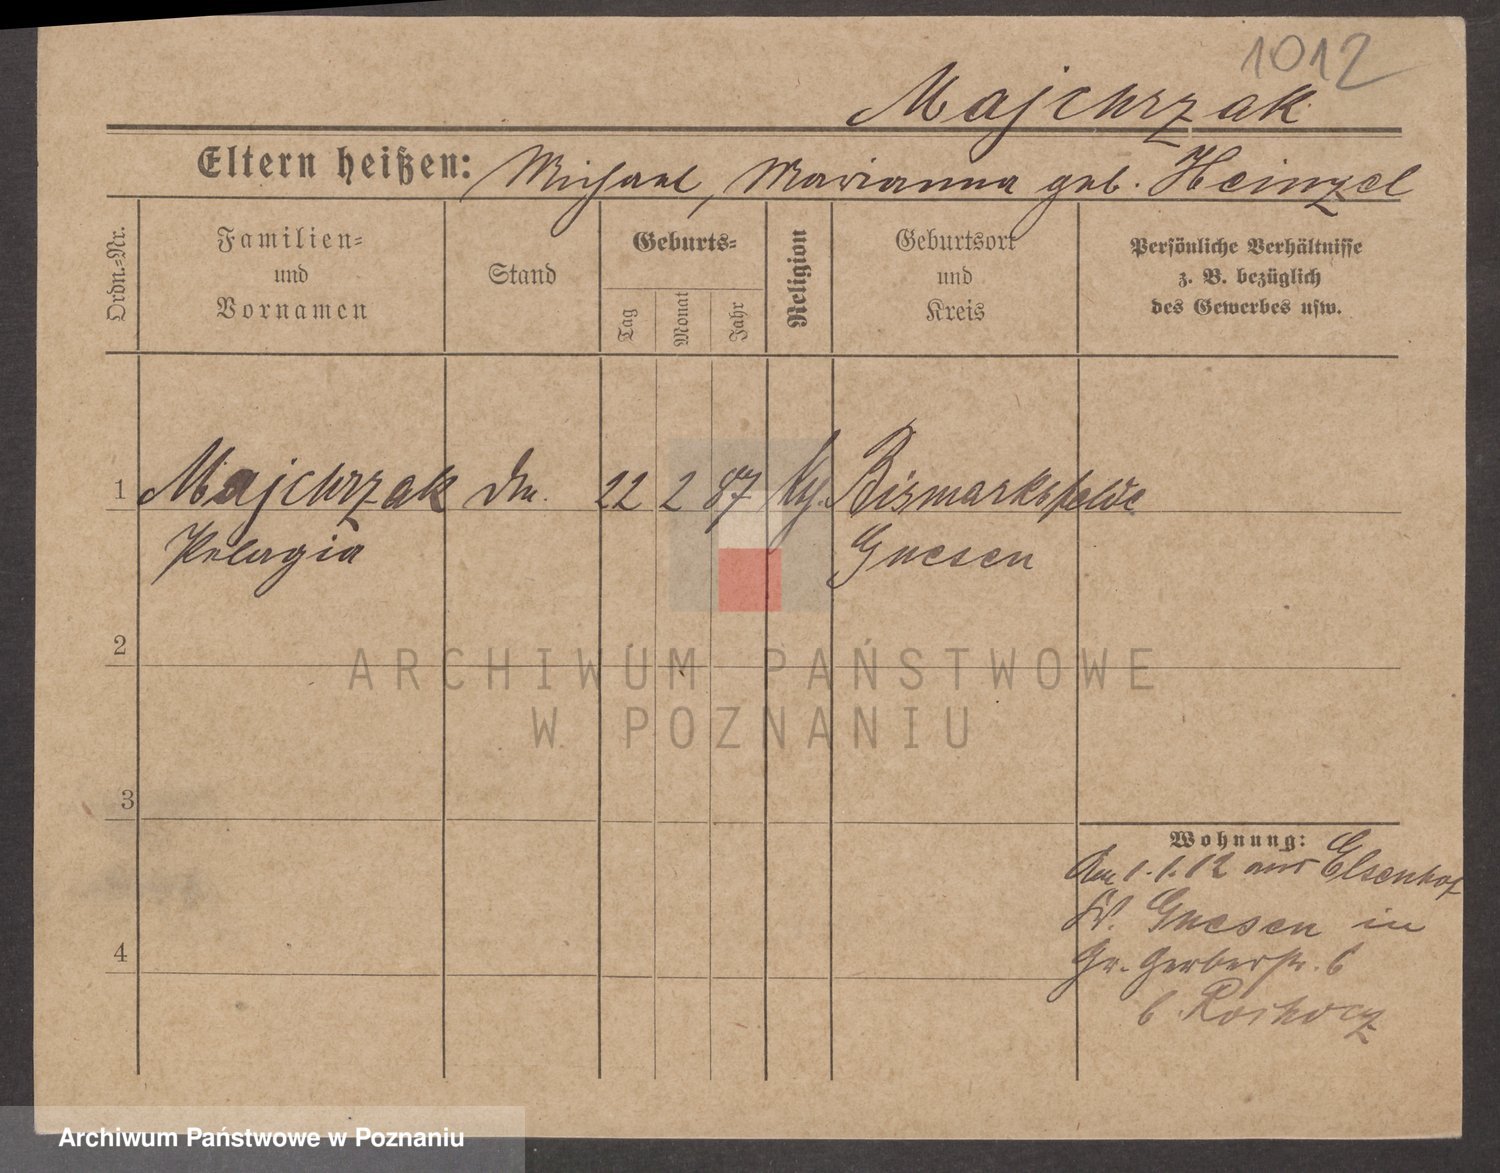 1012
Majchrzak
Eltern heißen: Michael, Marianna geb. Heinzel
Ordn.-Nr.
Familien-
und
Vornamen
Stand
Geburts-
Tag
Monat
Jahr
Religion
Geburtsort
und
Kreis
Persönliche Verhältnisse
z. B. bezüglich
des Gewerbes usw.
1 Majchrzak 22 2 87 Bismarksfelde
Pelagia Gnesen
2
ARCHIWUM PAŃSTWOWE
W POZNANIU
3
Wohnung:
Am 1.1.12 aus Elsenhof
Gnesen in
4
Gr. Gerberstr. 6
b.
Archiwum Państwowe w Poznaniu